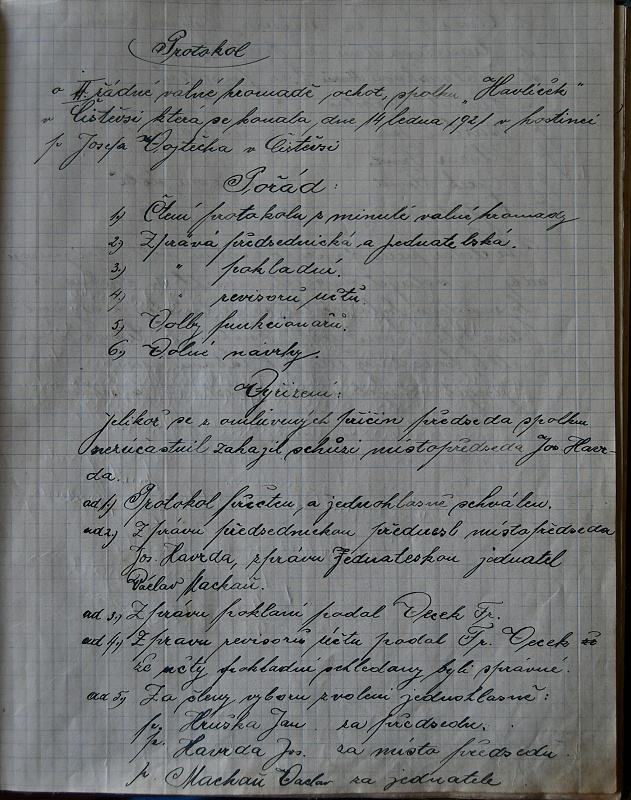 Protokol
o II. řádné válné hromadě ochot. spolku „Havlíček"
v Čištěvsi která se konala dne 14 ledna 1921 v hostinci
p Josefa Vojtěcha v Čištěvsi
Pořád:
1) Čtení protokolu z minulé valné hromady
2) Zpráva předsednická a jednatelská.
3) " pokladní.
4) " revisorů účtů.
5) Volby funkcionářů.
6) Volné návrhy.
Vyřízení:
Jelikož se z omluvených příčin předseda spolku
nezúčastnil zahájil schůzi místopředseda Jos Havr-
da.
ad 1) Protokol přečten, a jednohlasně schválen.
ad 2) Zprávu předsednickou přednesl místopředseda
Jos. Havrda, zprávu jednatelskou jednatel
Václav Machaň.
ad 3) Zprávu poklaní podal Fr.
ad 4) Zpravu revisorů účtu podal Fr.
že účty pokladní schledany byli správné.
ad 5) Za členy vyboru zvoleni jednohlasně:
pp. Hruška Jan za předsedu.
p. Havrda Jos. za místo předsedu
p. Machaň Vaclav za jednatele